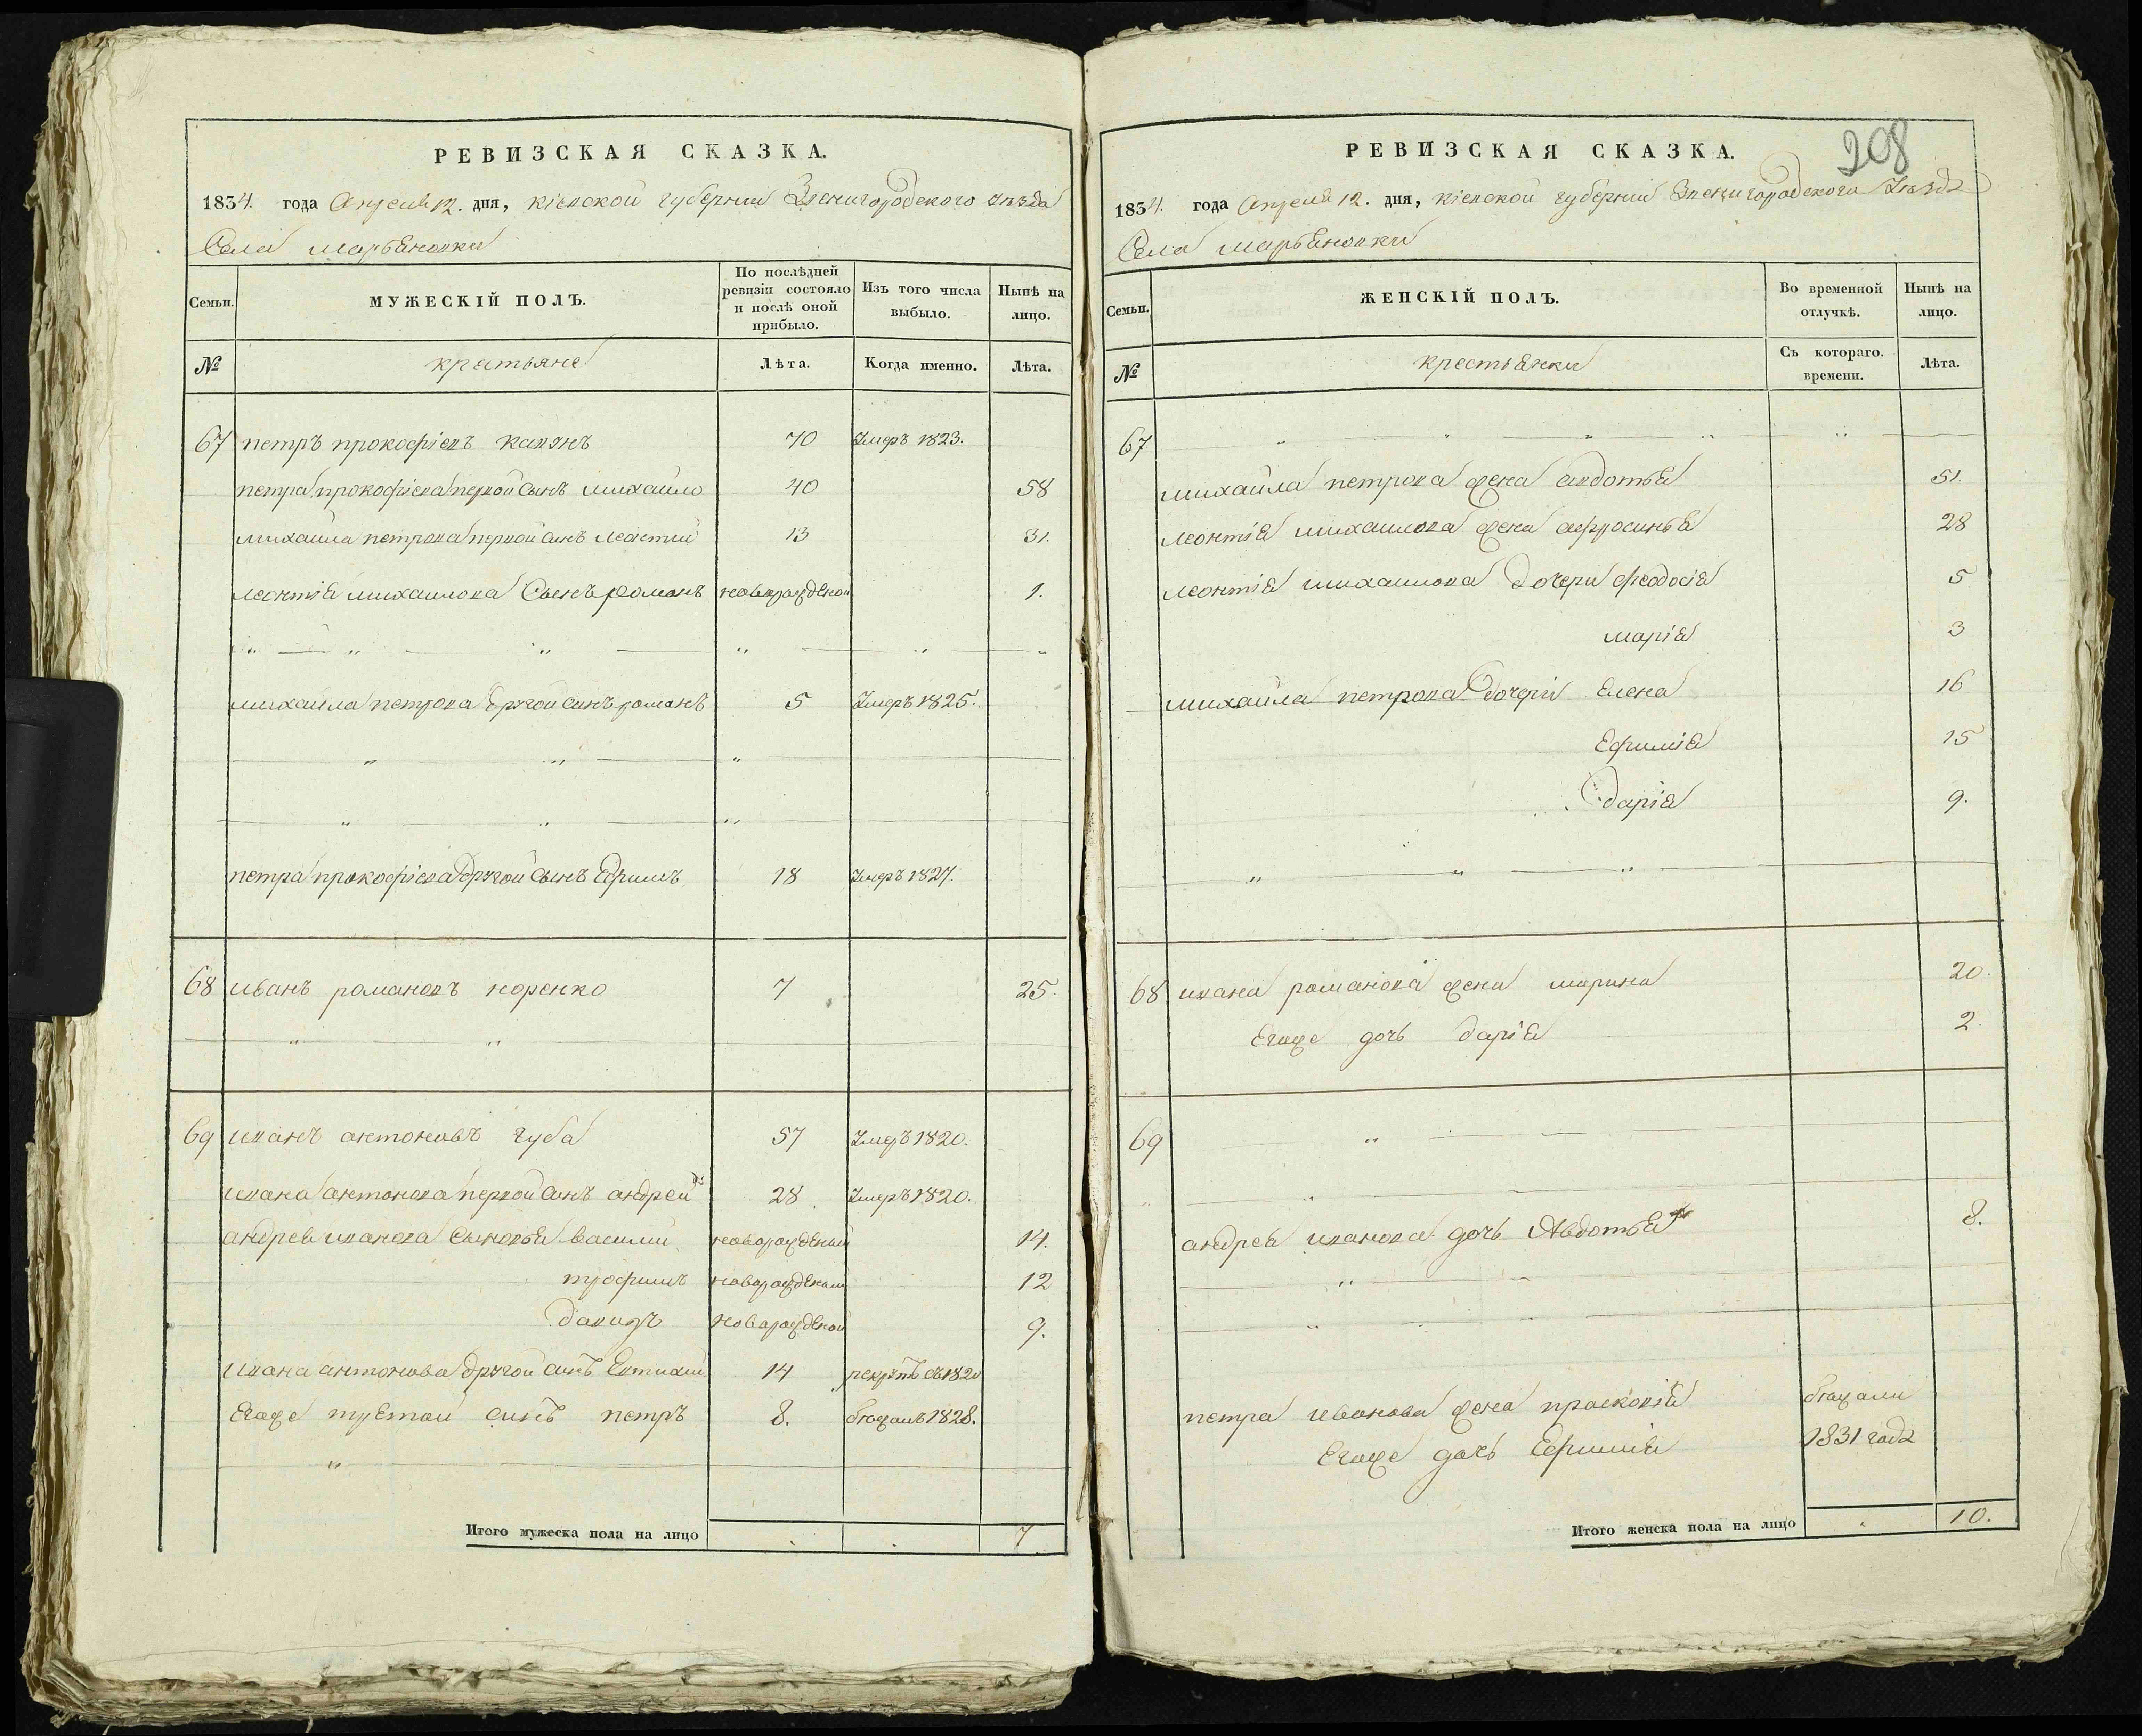 РЕВИЗСКАЯ СКАЗКА.
1834. года Апреля 12. дня, кіевской губернии Звенигородского уезда
Села марьяновки
Семьи.
МУЖЕСКІЙ ПОЛЪ.
По послѣдней ревизіи состояло и послѣ оной прибыло.
Изъ того числа выбыло.
Нынѣ на лицо.
№
крестьяне
Лѣта.
Когда именно.
Лѣта.
67 петръ прокофіевъ 70 Умеръ 1823.
петра прокофіева первой сынъ михайло 40 58
михаила петрова первой синъ леонтий 13 31.
леонтія михаилова Сынъ романъ новорожденой 1.
михаила петрова другой синъ романъ 5 Умеръ 1825.
петра прокофіева другой сынъ Ефимъ 18 Умеръ 1827.
68 иванъ романовъ норенко 7 25.
69 иванъ антоновъ губа 57 Умеръ 1820.
ивана антонова первой синъ андрей 28 Умеръ 1820.
андрея иванова Сыновья василий новорожденый 14.
трофимъ новорожденый 12
давидъ новорожденой 9.
ивана антонова другой синъ Евтихий 14 рекрутъ съ 1820
Егоже третой синъ петръ 8. бежалъ 1828.
Итого мужеска пола на лицо 7
208
РЕВИЗСКАЯ СКАЗКА.
1834. года Апреля 12. дня, кіевской губерний Звенигородского Уезда
Села марьяновки
Семьи.
ЖЕНСКІЙ ПОЛЪ.
Во временной отлучкѣ.
Нынѣ на лицо.
№
крестьянки
Съ котораго. времени.
Лѣта.
67
михайла петрова жена авдотья 51.
леонтія михаилова жена афросинья 28
леонтія михаилова Дочери феодосія 5
марія 3
михайла петрова Дочери Елена 16
Ефимія 15
дарія 9.
68 ивана романова жена марина 20.
Егоже дочь дарія 2.
69
андрея иванова дочь Авдотья 8.
петра иванова жена прасковія бежали
Егоже дочь Ефимия 1831 года
Итого женска пола на лицо 10.